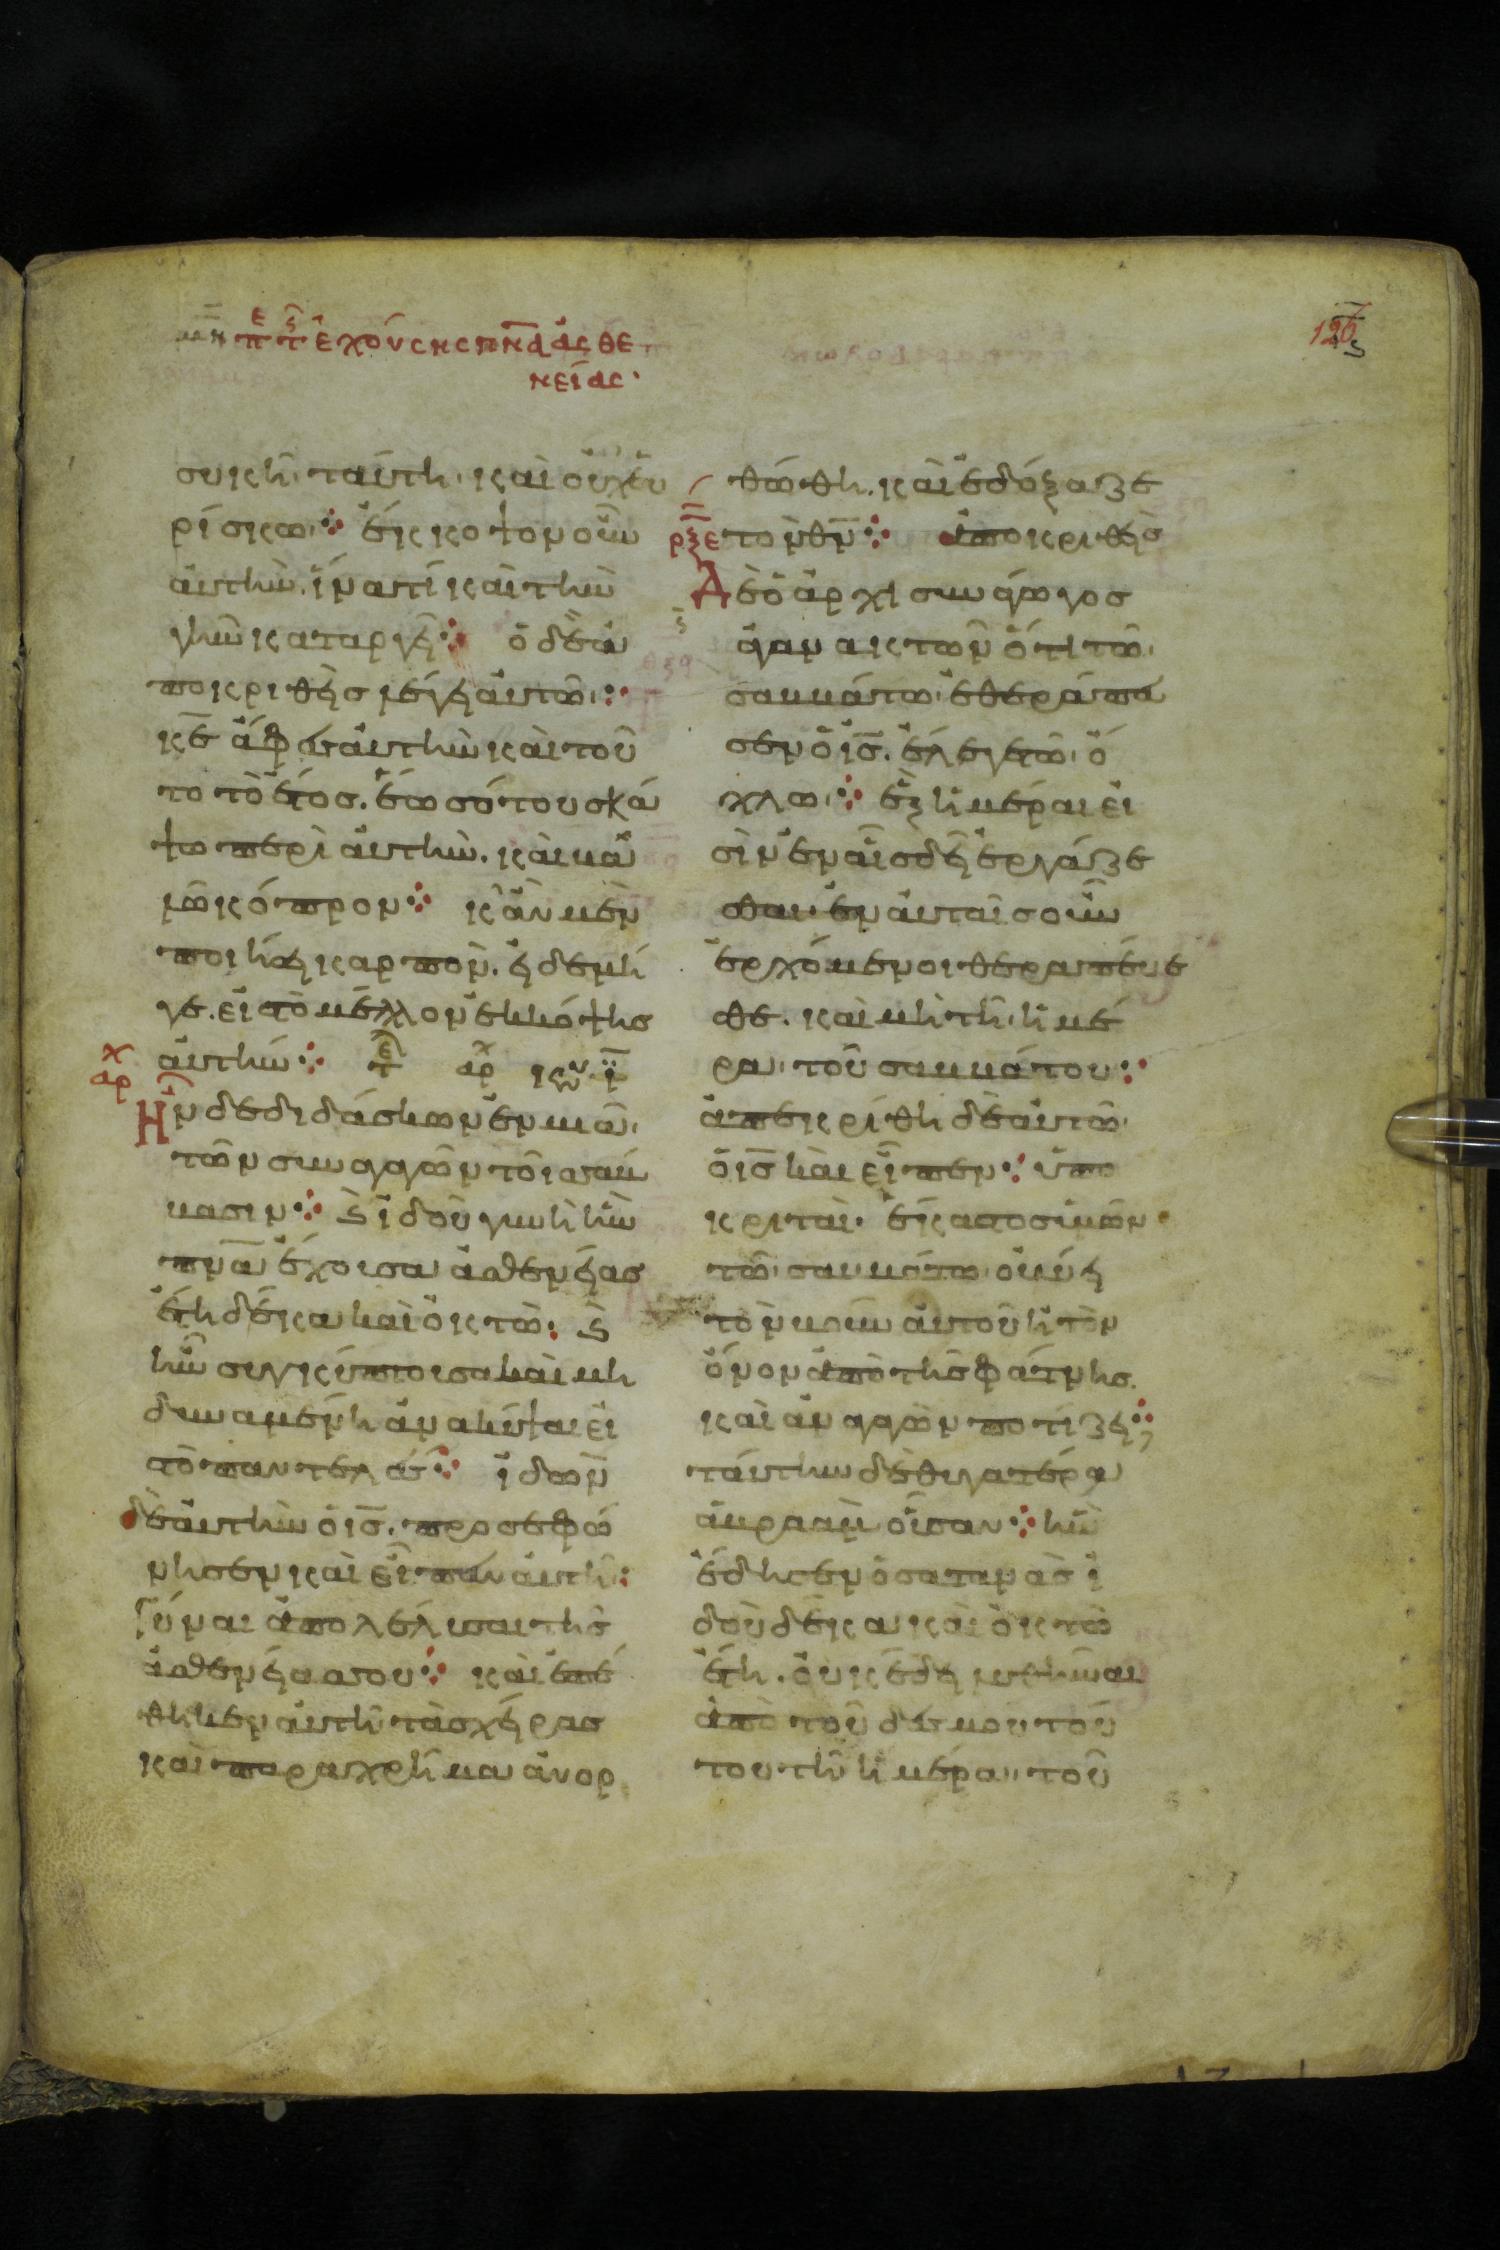 μη πε τς ἐχούσης πνᾱ ἀσθε
νείας·
126
συκῆ ταύτη· καὶ οὐχ εὑ
ρίσκω· ἔκκοψον οὖν
αὐτὴν. ἵνα τί καὶ τὴν
γῆν καταργεῖ· ὁ δὲ ἀ
ποκριθεὶς λέγει αὐτῶ·
κ̅ε̅ ἄφες αὐτὴν καὶ τοῦ
το τὸ ἔτος. ἕως ὅτου σκά
ψω περὶ αὐτὴν. καὶ βά
λω κόπρον· κἂν μὲν
ποιήσει καρπὸν. εἰ δὲ μή
γε. εἰς τὸ μέλλον ἐκκόψεις
αὐτήν· τε αρχ
αρχ
Ἦν δὲ διδάσκων ἐν μιᾶ
τῶν συναγωγῶν τοῖς σάβ
βασιν· καὶ ἰδοὺ γυνὴ ἦν
πν̅α̅ ἔχουσα ἀσθενείας
ἔτη δέκα καὶ ὀκτὼ· καὶ
ἦν συγκύπτουσα καὶ μὴ
δυναμένη ἀνακύψαι εἰς
τὸ παντελές· ἰδὼν
δὲ αὐτὴν ὁ ι̅ς̅. προσεφώ
νησεν καὶ εἶπεν αὐτῆ·
Γύναι ἀπολέλυσαι τῆς
ἀσθενείας σου· καὶ ἐπέ
θηκεν αὐτῆ τὰς χεῖρας
καὶ παραχρῆμα ἀνορ
θώθη. καὶ ἐδόξαζε
ρξε τὸν θ̅ν̅· ἀποκριθεὶς
Δὲ ὁ ἀρχισυνάγωγος
ἀγανακτῶν ὅτι τῶ
σαββάτω ἐθεράπευ
σεν ὁ ι̅ς̅. ἔλεγε τῶ ὄ
χλω· ἓξ ἡμέραι εἰ
σὶν ἐν αἷς δεῖ ἐργάζε
σθαι· ἐν αὐταῖς οὖν
ἐρχόμενοι θεραπεύε
σθε. καὶ μὴ τῆ ἡμέ
ρα τοῦ σαββάτου·
ἀπεκρίθη δὲ αὐτῶ
ὁ ι̅ς̅ καὶ εἶπεν· ὑπο
κριταὶ· ἕκαστος ὑμῶν
τῶ σαββάτω οὐ λύει
τὸν βοῦν αὐτοῦ ἢ τὸν
ὄνον ἀπὸ τῆς φάτνης.
καὶ ἀπαγαγὼν ποτίζει·
ταύτην δὲ θυγατέρα
ἀβραὰμ οὖσαν· ἣν
ἔδησεν ὁ σατανᾶς ἰ
δοὺ δέκα καὶ ὀκτὼ
ἔτη. οὐκ ἔδει λυθῆναι
ἀπὸ τοῦ δεσμοῦ τού
του τῆ ἡμέρα τοῦ